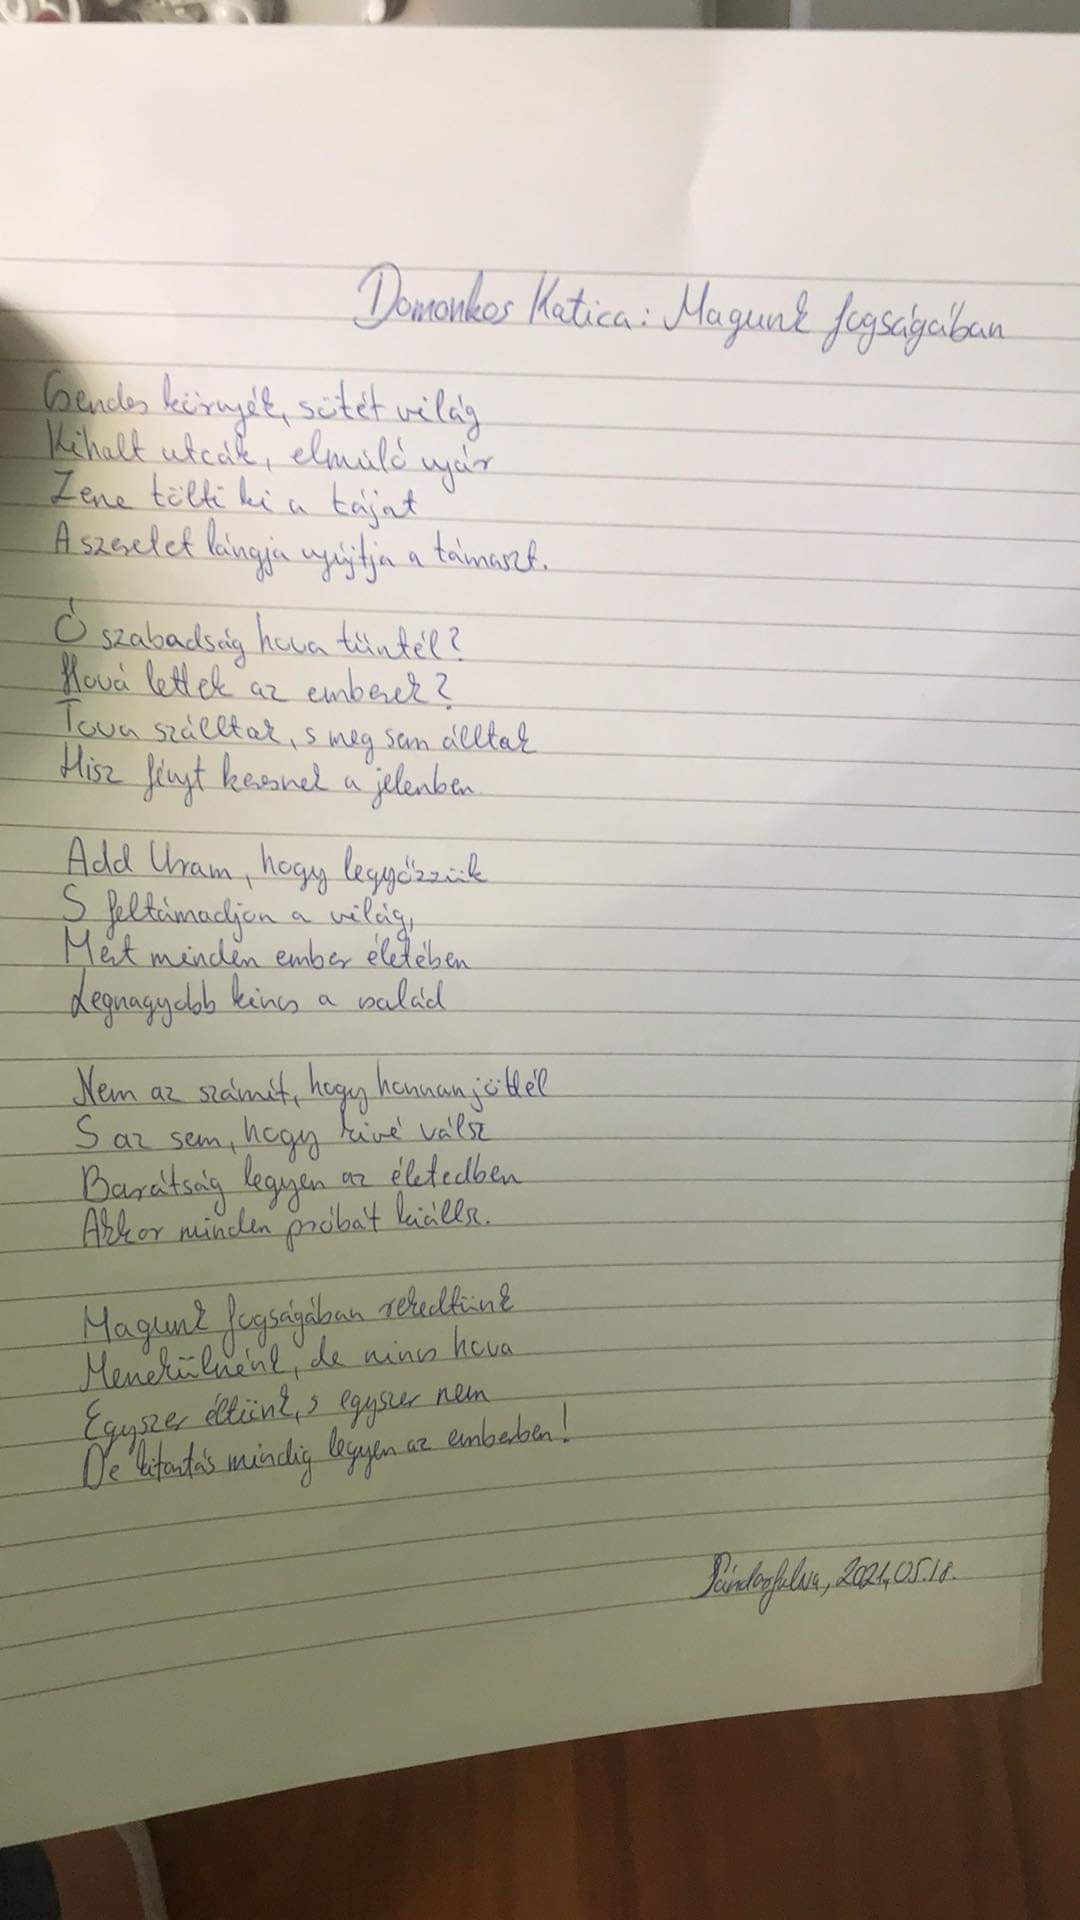 Domonkos Katica: Magunk fogságában
Csendes környék, sötét világ
Kihalt utcák, elmúló nyár
Zene tölti ki a tájat
A szeretet lángja nyújtja a támaszt.
Ó szabadság hova tüntél?
Hová lettek az emberek?
Tova szálltak, s meg sem álltak
Hisz fényt keresnek a jelenben
Add Uram, hogy legyőzzük
S feltámadjon a világ,
Mert minden ember életében
Legnagyobb kincs a család
Nem az számít, hogy honnan jöttél
S az sem, hogy kivé válsz
Barátság legyen az életedben
Akkor minden próbát kiállsz.
Magunk fogságában rekedtünk
Menekülnénk, de nincs hova
Egyszer éltünk, s egyszer nem
De kitartás mindig legyen az emberben!
2021.05.18.